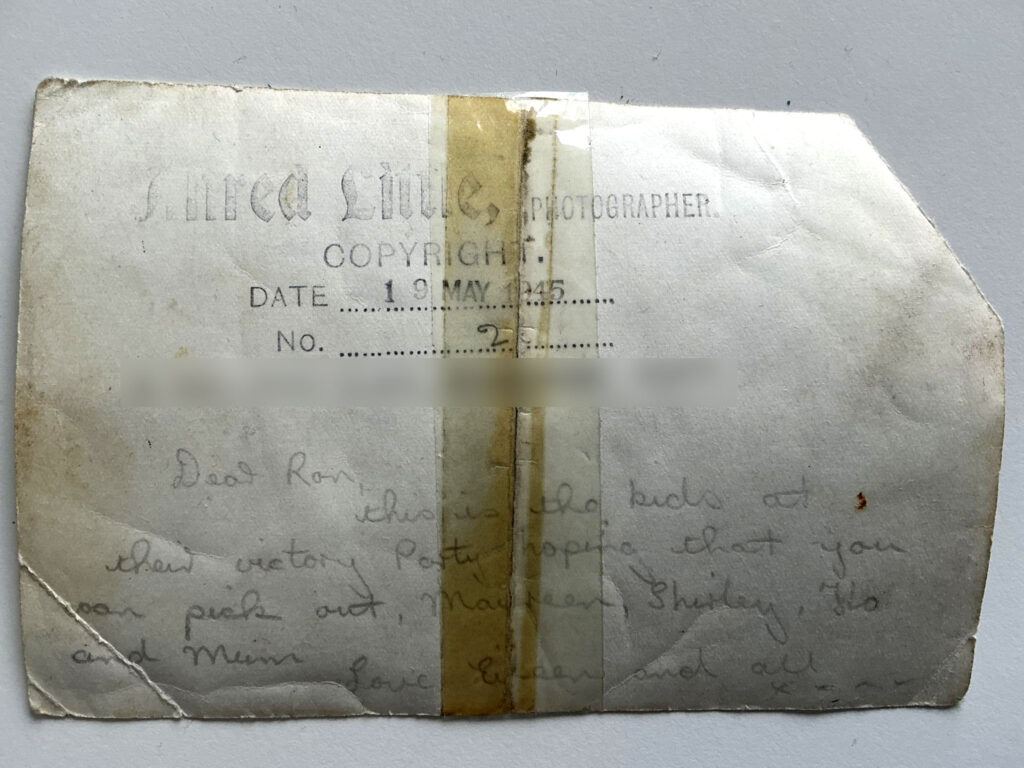 Alfred Little, PHOTOGRAPHER.
COPYRIGHT.
DATE ........ 19 MAY 1945 ........
No. ........ 2
Dear Ron,
this is the kids at
their victory Party hoping that you
can pick out, Maureen, Shirley,
and Mum
Love Eileen and all